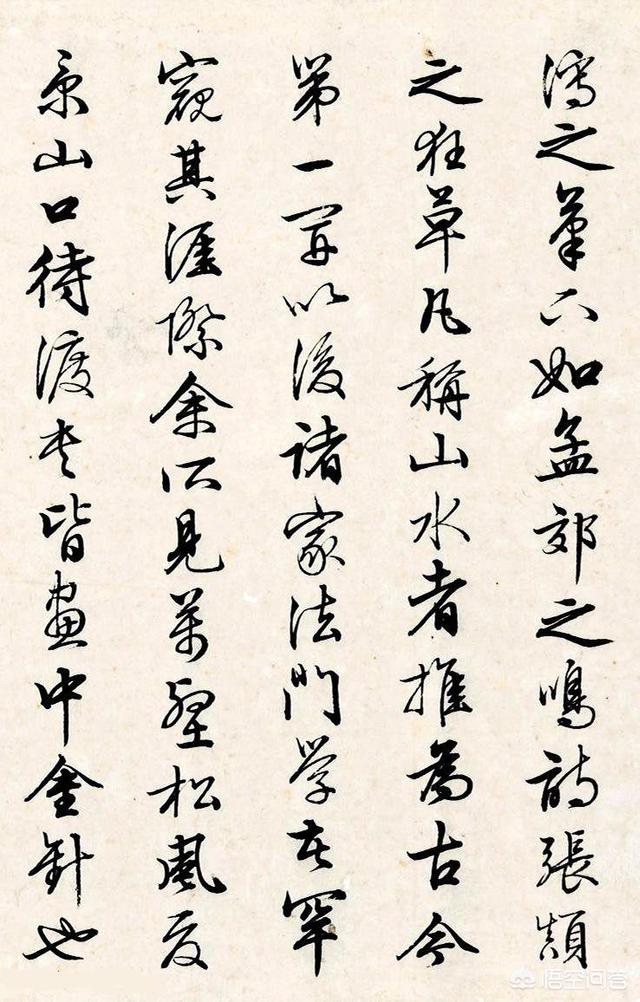 瀉之筆下如孟郊之鳴詩張顛
之狂草凡稱山水者推爲古今
第一以後諸家法門學者罕
窺其涯際余所見萬壑松風夏
景山口待渡卷皆畫中金針也
悟空问答